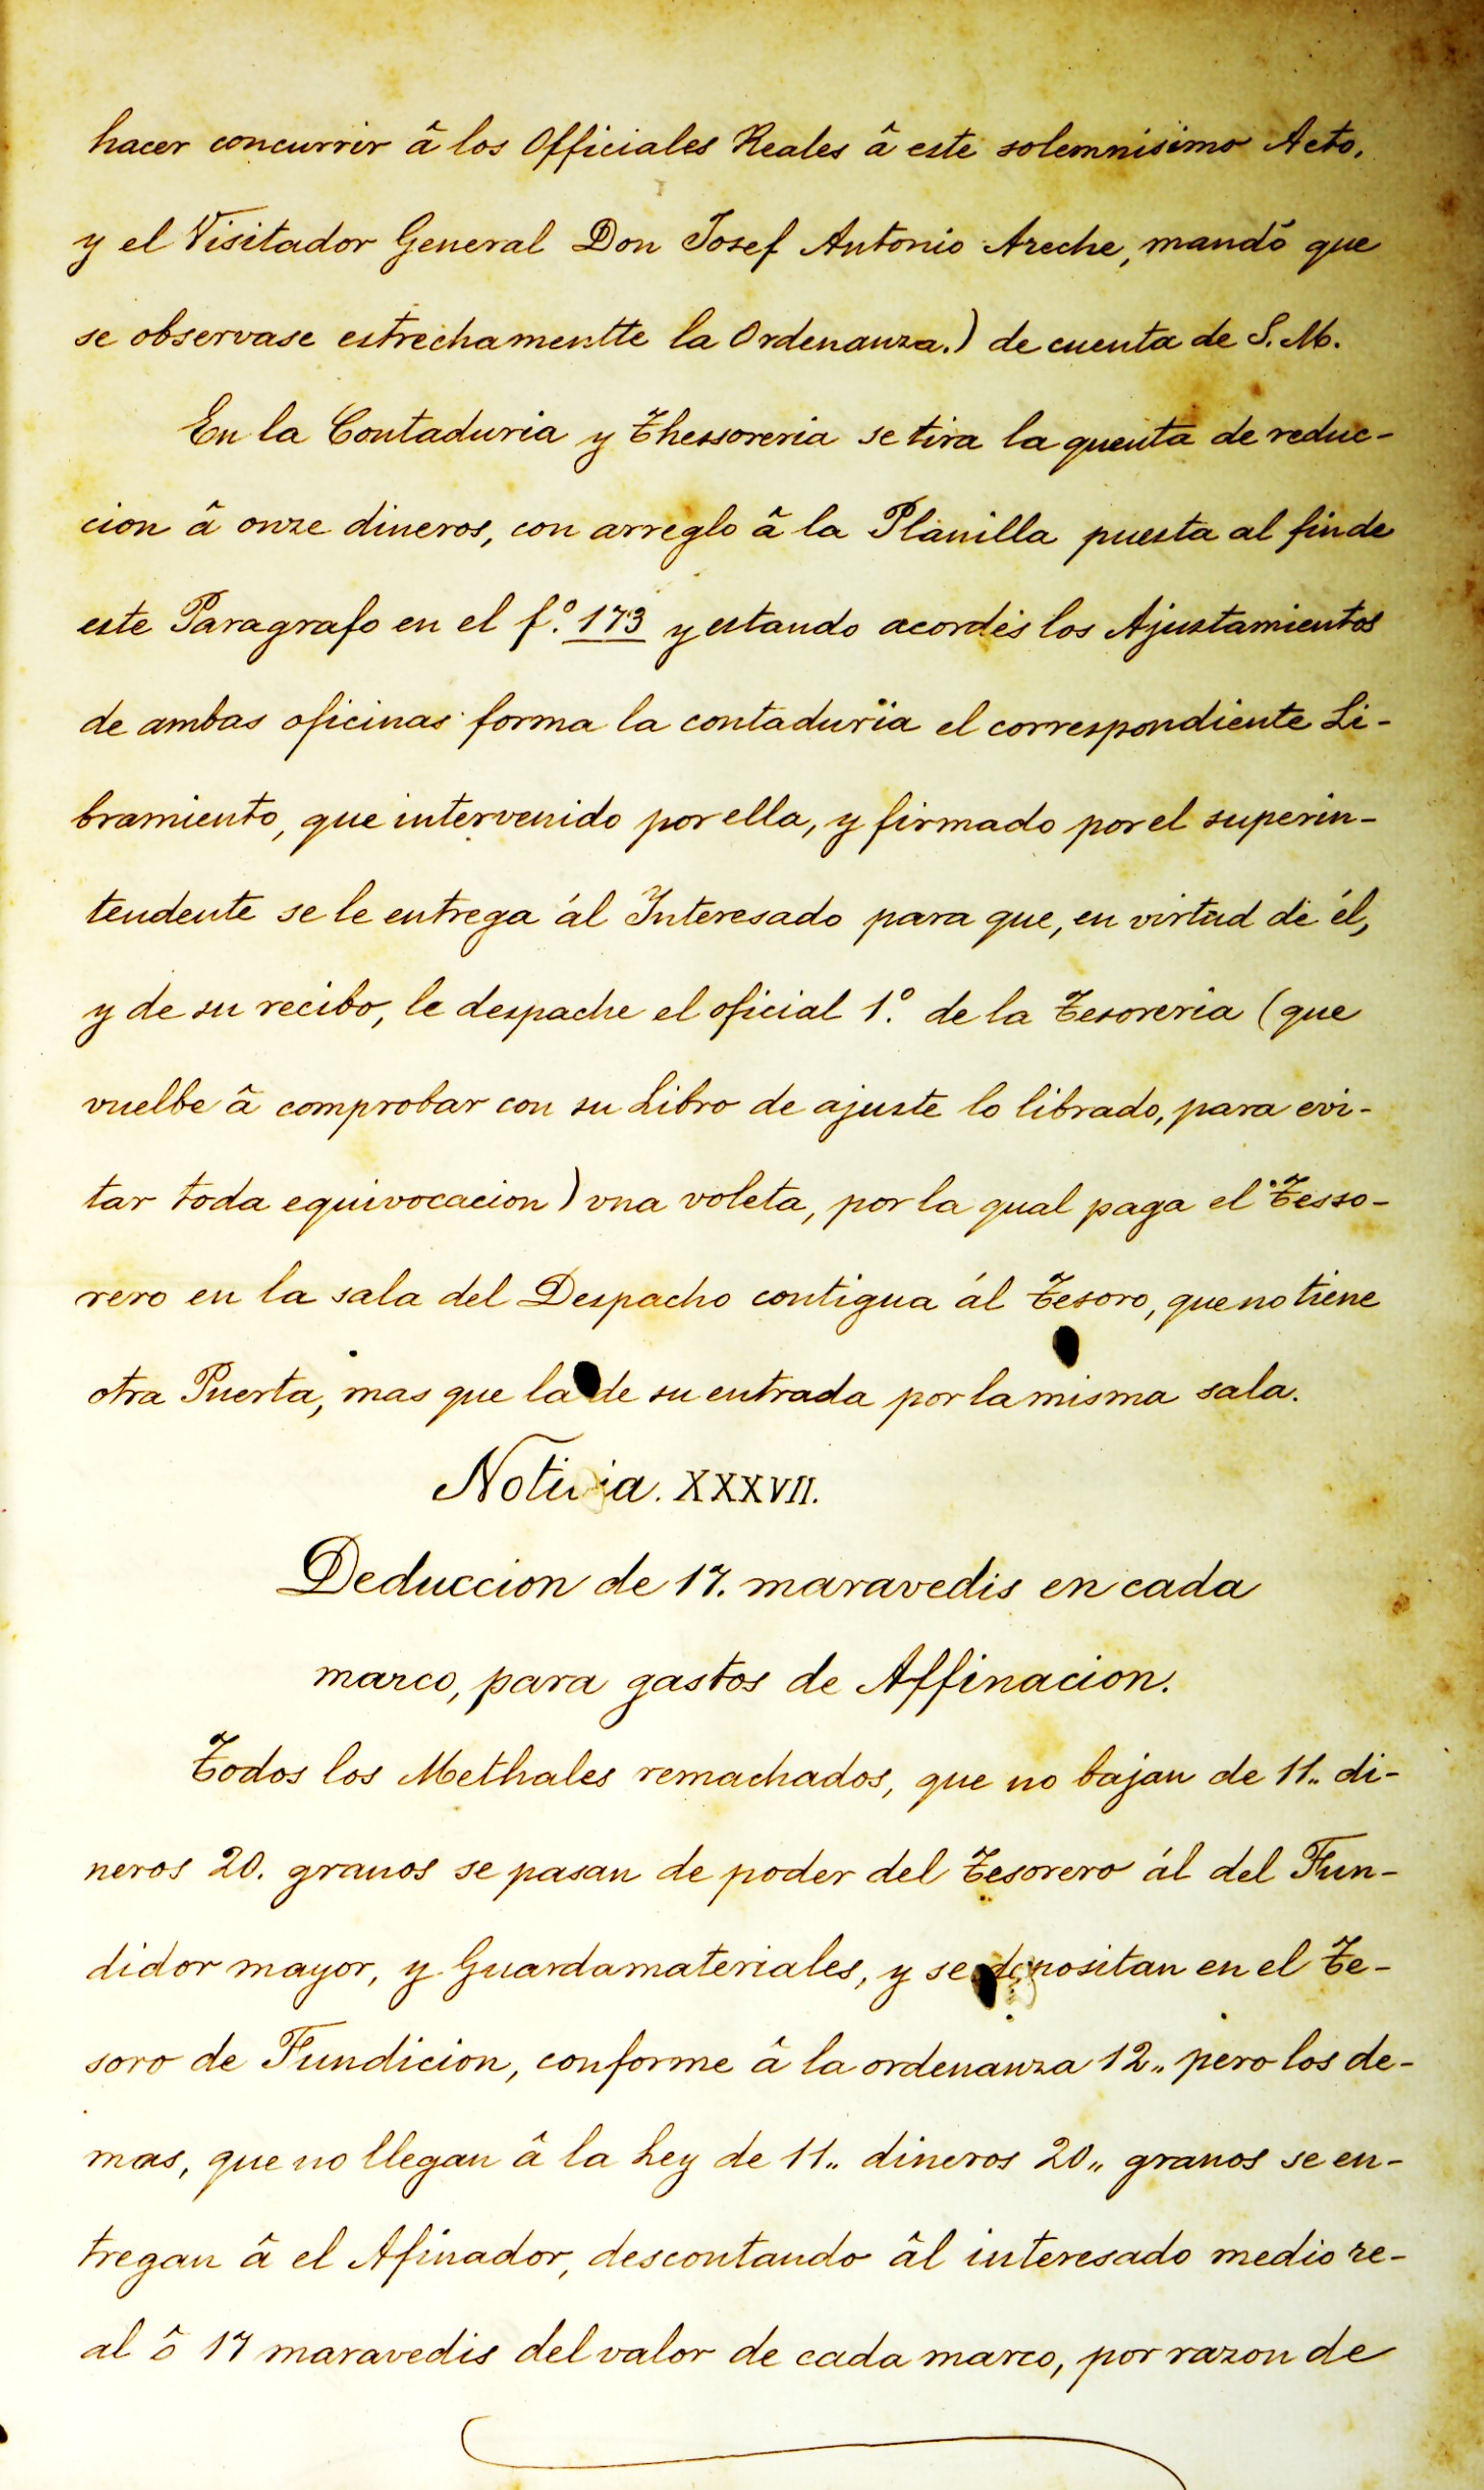 hacer concurrir â los Officiales Reales â este solemnisimo Acto,
y el Visitador General Don Josef Antonio Areche, mandó que
se observase estrechamentte la Ordenanza.) de cuenta de S. M.
En la Contaduria y Thessoreria se tira la quenta de reduc-
cion â onze dineros, con arreglo â la Planilla puesta al fin de
este Paragrafo en el f.º 173 y estando acordes los Ajustamientos
de ambas oficinas forma la contaduria el correspondiente Li-
bramiento, que intervenido por ella, y firmado por el superin-
tendente se le entrega ál Interesado para que, en virtud de él,
y de su recibo, le despache el oficial 1.º de la Tesoreria (que
vuelbe â comprobar con su Libro de ajuste lo librado, para evi-
tar toda equivocacion) vna voleta, por la qual paga el Tesso-
rero en la sala del Despacho contigua ál Tesoro, que no tiene
otra Puerta, mas que la de su entrada por la misma sala.
Noticia. XXXVII.
Deduccion de 17. maravedis en cada
marco, para gastos de Affinacion.
Todos los Methales remachados, que no bajan de 11.. di-
neros 20. granos se pasan de poder del Tesorero ál del Fun-
didor mayor, y Guardamateriales, y se depositan en el Te-
soro de Fundicion, conforme â la ordenanza 12.. pero los de-
mas, que no llegan â la Ley de 11.. dineros 20.. granos se en-
tregan â el Afinador, descontando âl interesado medio re-
al ô 17 maravedis del valor de cada marco, por razon de